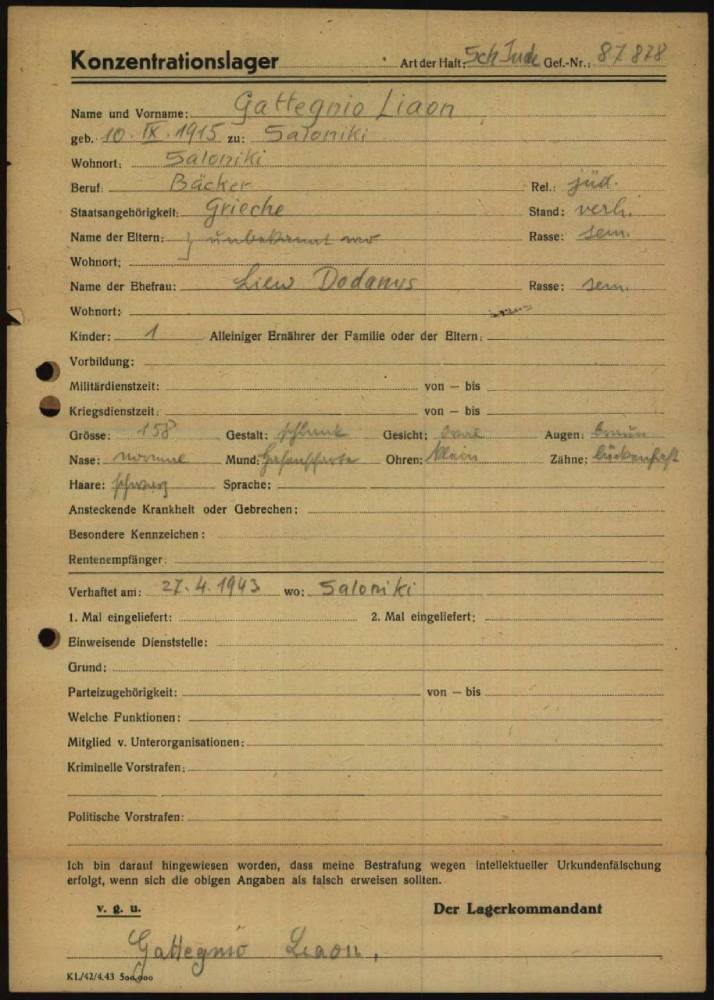 Konzentrationslager Art der Haft: Sch Jude Gef.-Nr.: 87 878
Name und Vorname: Gattegnio Liaon
geb. 10. IX. 1915 zu: Saloniki
Wohnort: Saloniki
Beruf: Bäcker Rel.: jüd.
Staatsangehörigkeit: Grieche Stand: verh.
Name der Eltern: } unbekannt wo Rasse: sem.
Wohnort:
Name der Ehefrau: Liew Dodanus Rasse: sem.
Wohnort:
Kinder: 1 Alleiniger Ernährer der Familie oder der Eltern:
Vorbildung:
Militärdienstzeit: von — bis
Kriegsdienstzeit: von — bis
Grösse: 158 Gestalt: schlank Gesicht: oval Augen: braun
Nase: normal Mund: Hasenscharte Ohren: klein Zähne: lückenhaft
Haare: schwarz Sprache:
Ansteckende Krankheit oder Gebrechen:
Besondere Kennzeichen:
Rentenempfänger:
Verhaftet am: 27. 4. 1943 wo: Saloniki
1. Mal eingeliefert: 2. Mal eingeliefert:
Einweisende Dienststelle:
Grund:
Parteizugehörigkeit: von — bis
Welche Funktionen:
Mitglied v. Unterorganisationen:
Kriminelle Vorstrafen:
Politische Vorstrafen:
Ich bin darauf hingewiesen worden, dass meine Bestrafung wegen intellektueller Urkundenfälschung
erfolgt, wenn sich die obigen Angaben als falsch erweisen sollten.
v. g. u. Der Lagerkommandant
Gattegnio Liaon,
KL/42/4.43 500,000